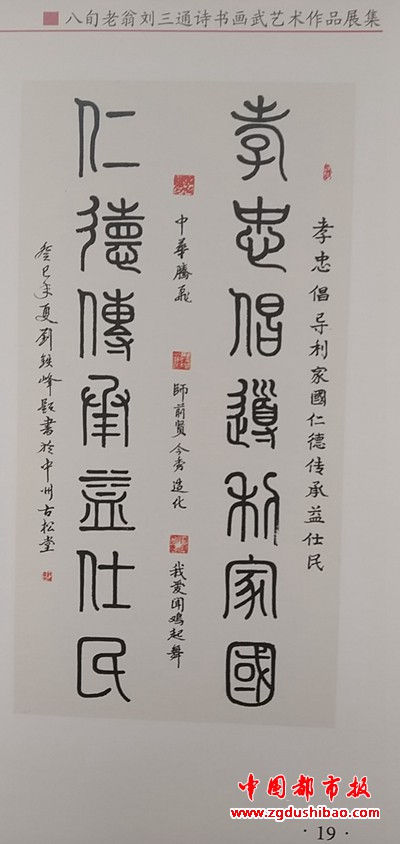 八旬老翁刘三通诗书画武艺术作品展集
孝忠倡导利家國仁德传承益仕民
孝忠倡導利家國
中華騰飛
師前賢今秀造化
我愛聞鸡起舞
仁德傳承益仕民
癸巳年夏劉鉄峰题書於中州古松堂
中国都市报
www.zgdushibao.com
·19·